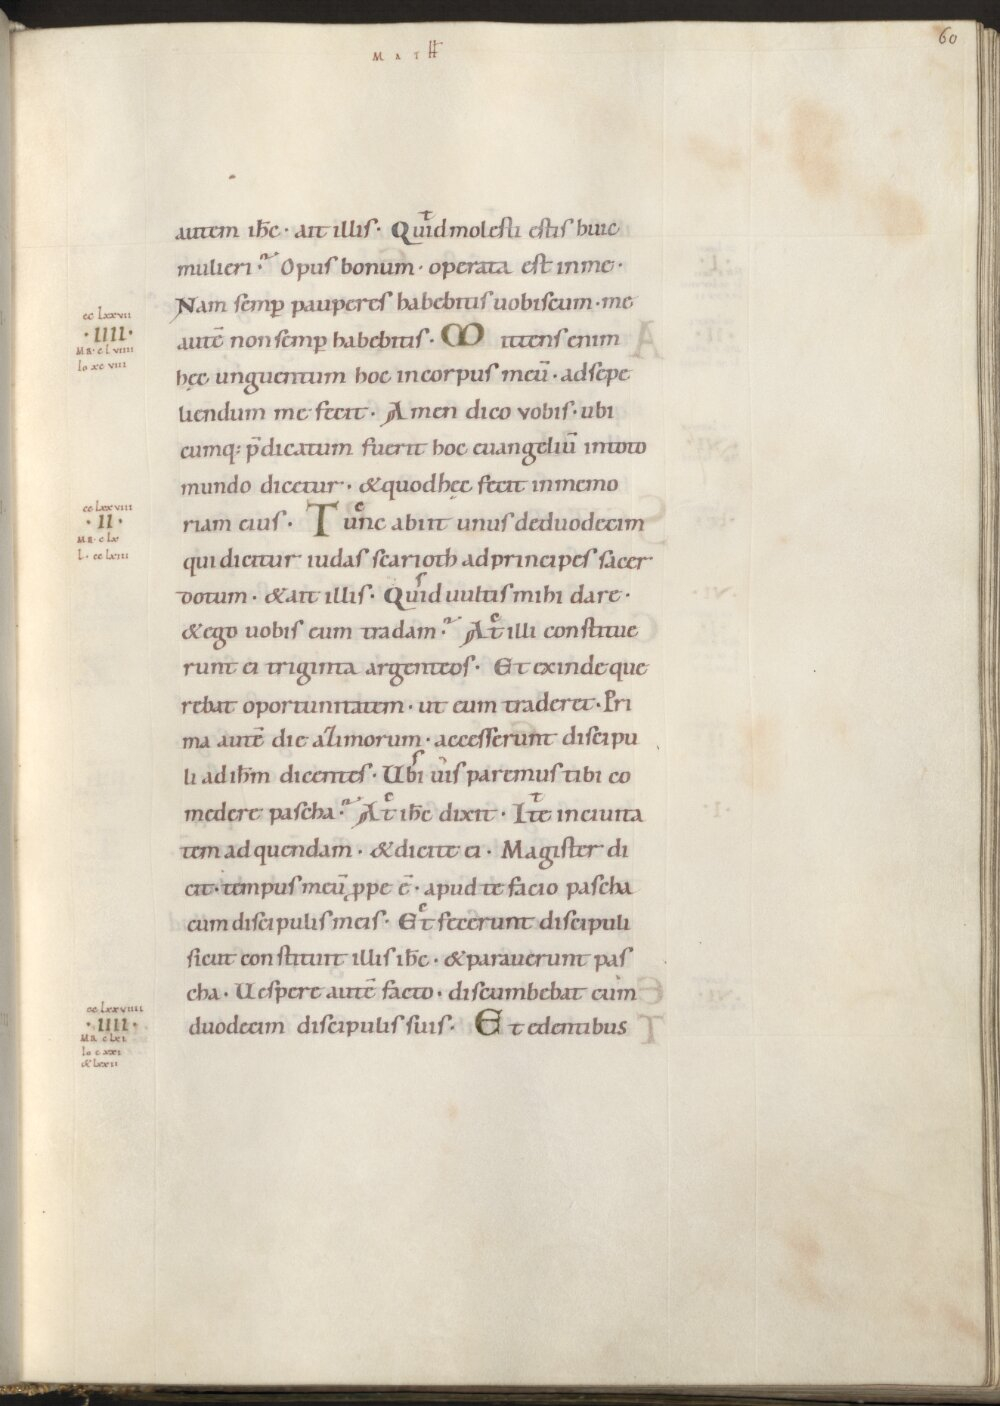 MATH
60
autem ihc · ait illis · Quid molesti estis huic
mulieri? Opus bonum · operata est in me ·
Nam semp pauperes habebitis uobiscum · me
cc Lxxvii
autē non semp habebitis · Mittens enim
· IIII ·
MR · c L viiii
Io xc viii
hęc unguentum hoc in corpus meū · ad sepe
liendum me fecit · Amen dico vobis · ubi
cumq: p̄dicatum fuerit hoc euangeliū in toto
mundo dicetur · & quod hęc fecit in memo
cc Lxxviii
riam eius · Tunc abiit unus de duodecim
· II ·
MR · c Lx
L · cc Lxiii
qui dicitur iudas scarioth ad principes sacer
dotum · & ait illis · Quid uultis mihi dare ·
& ego uobis eum tradam? At illi constitue
runt ei triginta argenteos · Et exinde que
rebat oportunitatem · ut eum traderet · Pri
ma autē die azimorum · accesserunt discipu
li ad ihm dicentes · Ubi uis paremus tibi co
medere pascha? At ihc dixit · Ite in ciuita
tem ad quendam · & dicite ei · Magister di
cit · tempus meū ppe ē · apud te facio pascha
cum discipulis meis · Et fecerunt discipuli
sicut constituit illis ihc · & parauerunt pas
cha · Uespere autē facto · discumbebat cum
cc Lxxviiii
duodecim discipulis suis · Et edentibus
· IIII ·
MR · c Lxi
Io c xxi
& Lxxii